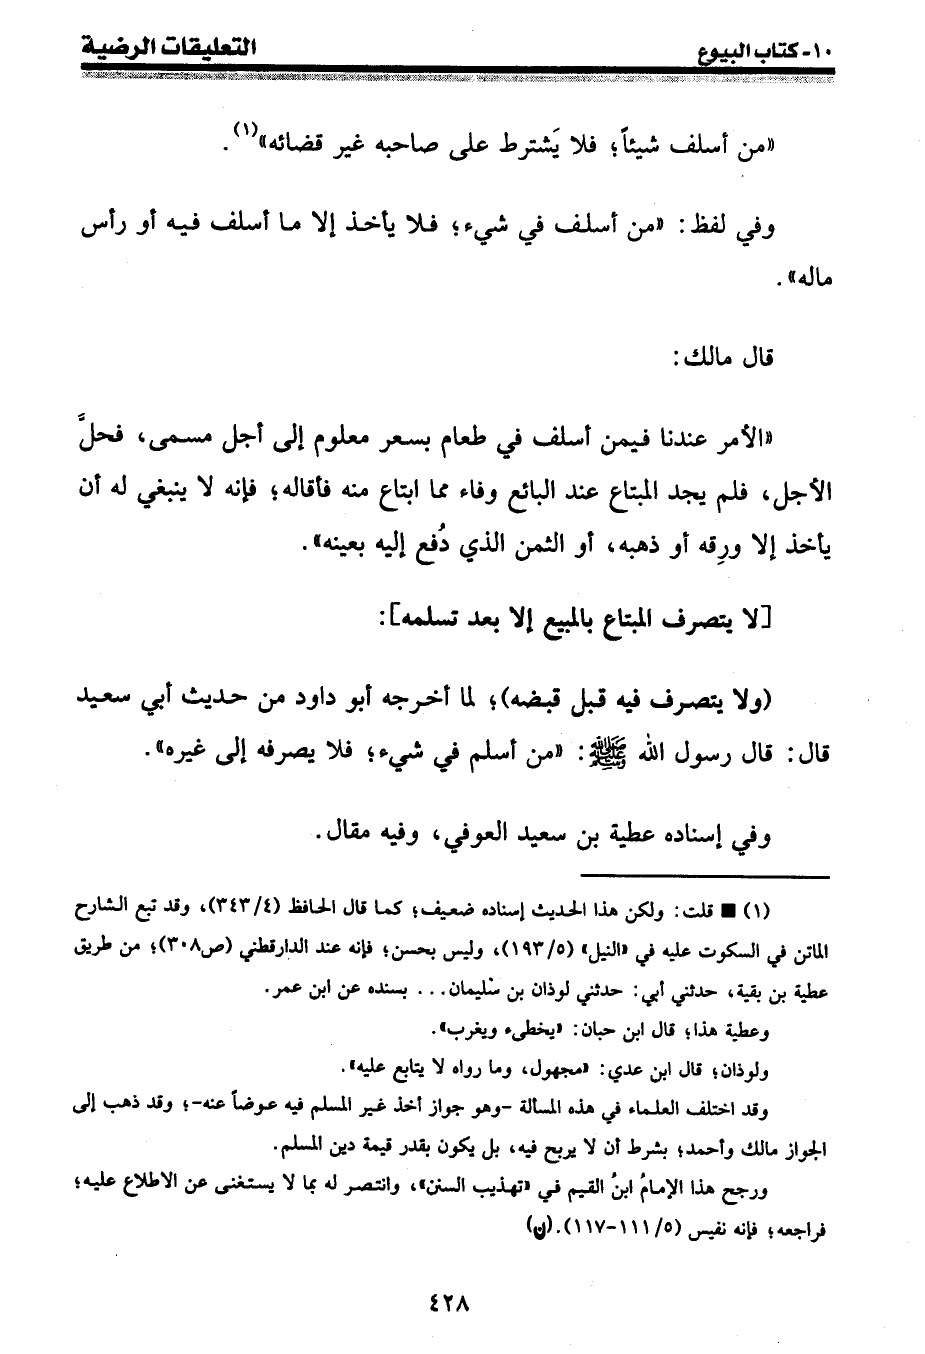 ١٠- كتاب البيوع
التعليقات الرضية
«من أسلف شيئاً؛ فلا يَشترط على صاحبه غير قضائه»(١).
وفي لفظ: «من أسلف في شيء؛ فلا يأخذ إلا ما أسلف فيه أو رأس
ماله».
قال مالك:
«الأمر عندنا فيمن أسلف في طعام بسعر معلوم إلى أجل مسمى، فحلَّ
الأجل، فلم يجد المبتاع عند البائع وفاء مما ابتاع منه فأقاله؛ فإنه لا ينبغي له أن
يأخذ إلا ورِقه أو ذهبه، أو الثمن الذي دُفع إليه بعينه».
[لا يتصرف المبتاع بالمبيع إلا بعد تسلمه]:
(ولا يتصرف فيه قبل قبضه)؛ لما أخرجه أبو داود من حديث أبي سعيد
قال: قال رسول الله ﷺ: «من أسلم في شيء؛ فلا يصرفه إلى غيره».
وفي إسناده عطية بن سعيد العوفي، وفيه مقال.
(١) ■ قلت: ولكن هذا الحديث إسناده ضعيف؛ كما قال الحافظ (٣٤٣/٤)، وقد تبع الشارح
الماتن في السكوت عليه في «النيل» (١٩٣/٥)، وليس بحسن؛ فإنه عند الدارقطني (ص٣٠٨)؛ من طريق
عطية بن بقية، حدثني أبي: حدثني لوذان بن سُليمان... بسنده عن ابن عمر.
وعطية هذا؛ قال ابن حبان: «يخطىء ويغرب».
ولوذان؛ قال ابن عدي: «مجهول، وما رواه لا يتابع عليه».
وقد اختلف العلماء في هذه المسألة -وهو جواز أخذ غير المسلم فيه عوضاً عنه-؛ وقد ذهب إلى
الجواز مالك وأحمد؛ بشرط أن لا يربح فيه، بل يكون بقدر قيمة دين المسلم.
ورجح هذا الإمامُ ابنُ القيم في «تهذيب السنن»، وانتصر له بما لا يستغنى عن الاطلاع عليه؛
فراجعه؛ فإنه نفيس (١١١/٥-١١٧).(ن)
٤٢٨